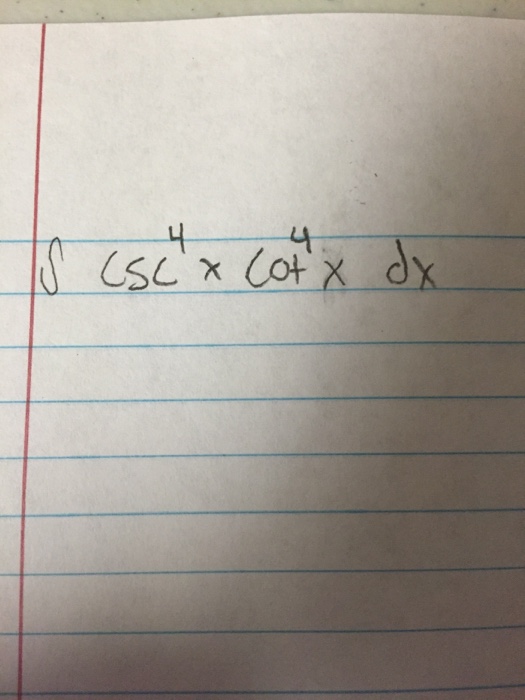 ∫ csc⁴x cot⁴x dx